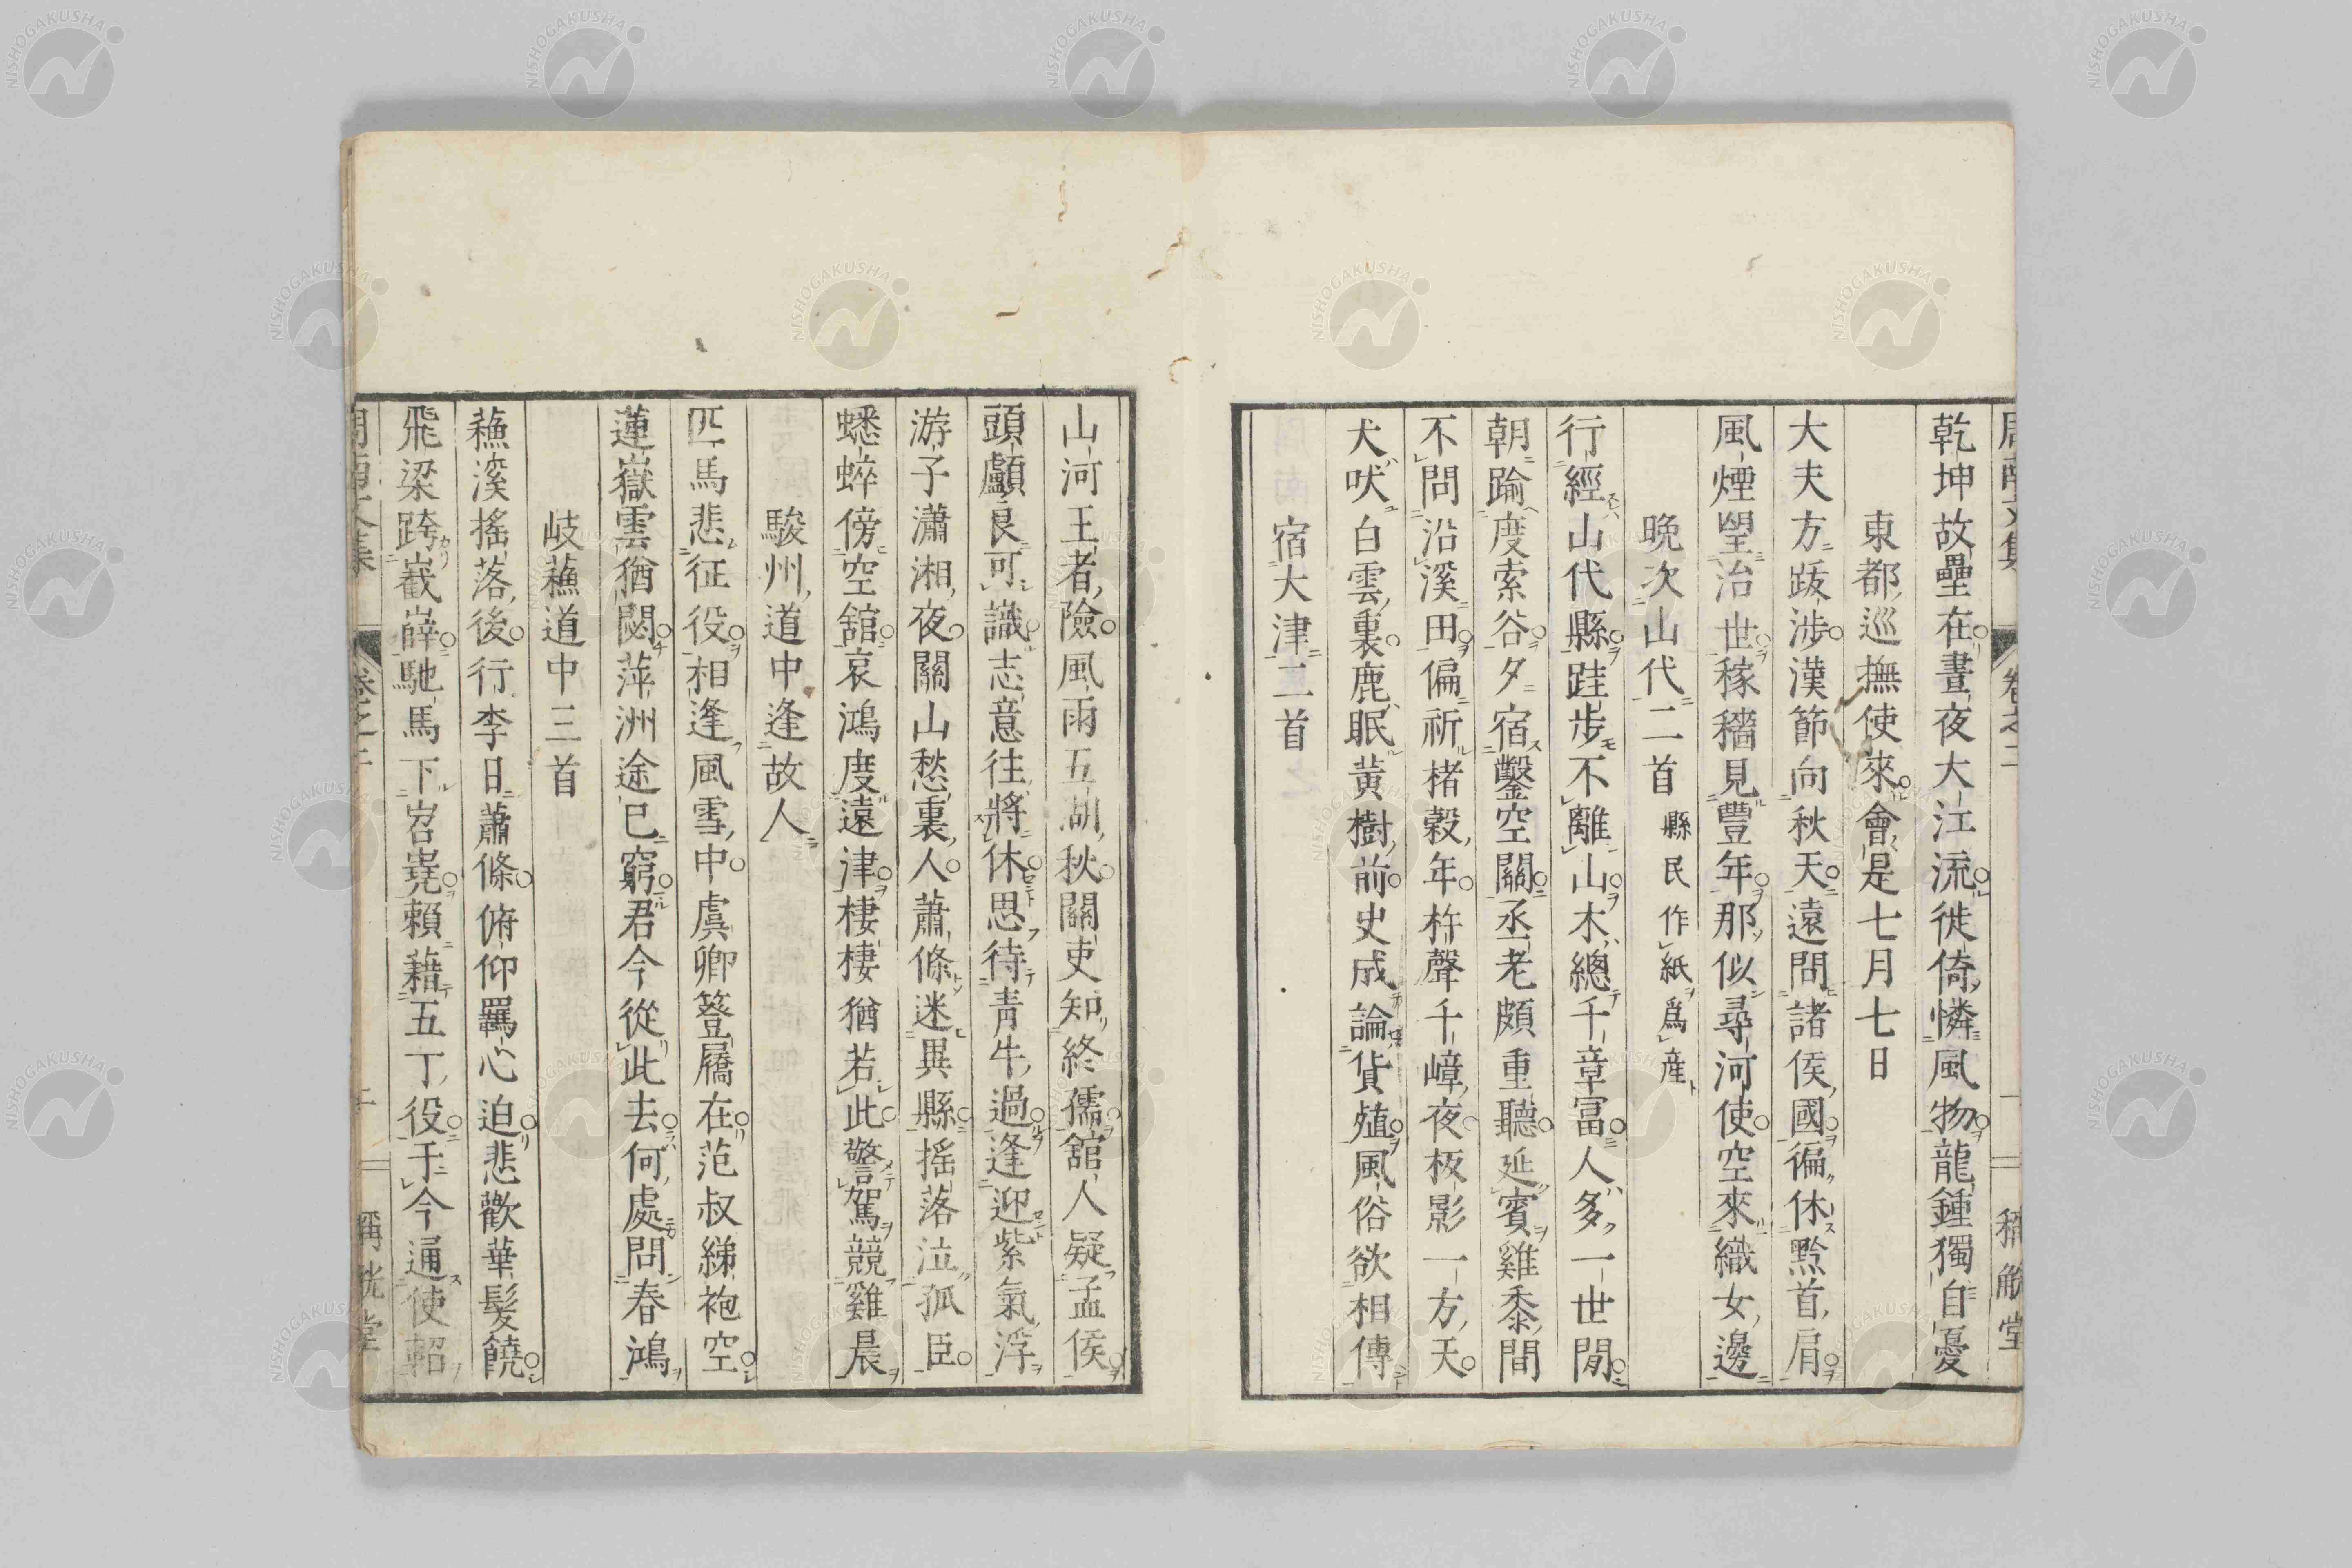 乾坤故壘在晝夜大江流徙倚憐風物龍鍾獨自憂
東都巡撫使來會是七月七日
大夫方跋渉漢節向秋天遠問諸侯國徧休黔首肩
風煙望治世稼穡見豐年那似尋河使空來織女邊
晩次山代二首 縣民作紙爲產
行經山代縣跬步不離山木總千章富人多一世閒
朝踰度索谷夕宿鑿空關丞老頗重聽延賓雞黍間
不問沿溪田偏祈楮穀年杵聲千嶂夜板影一方天
犬吠白雲裏鹿眠黃樹前史成論貨殖風俗欲相傳
宿大津二首
山河王者險風雨五湖秋關吏知終儒舘人疑孟侯
頭顱良可識志意往將休思待靑牛過逢迎紫氣浮
游子瀟湘夜關山愁裏人蕭條迷異縣搖落泣孤臣
蟋蟀傍空舘哀鴻度遠津棲棲猶若此警駕競雞晨
駿州道中逢故人
匹馬悲征役相逢風雪中虞卿簦屩在范叔綈袍空
蓮嶽雲猶閟萍洲途已窮君今從此去何處問春鴻
岐蘓道中三首
蘓溪搖落後行李日蕭條俯仰羈心迫悲歡華髮饒
飛梁跨嶻嶭馳馬下岧嶢賴藉五丁役于今通使軺
卷之二
稱觥堂
NISHOGAKUSHA